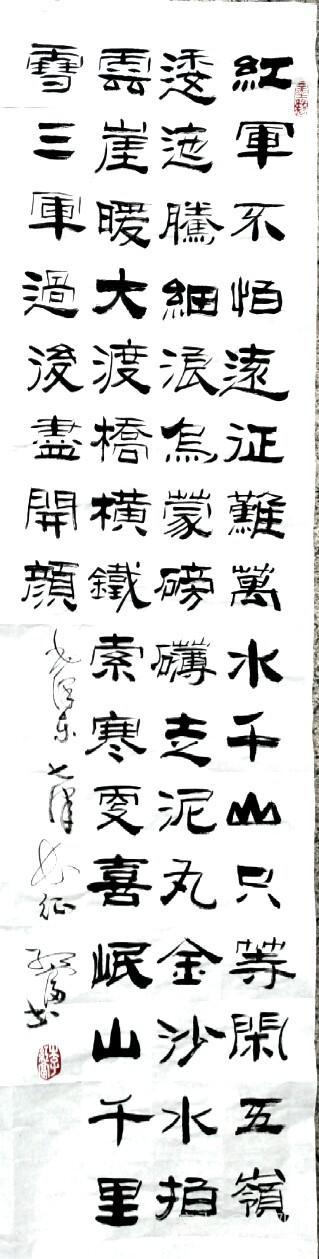 紅軍不怕遠征難萬水千山只等閑五嶺
逶迤騰細浪烏蒙磅礴走泥丸金沙水拍
雲崖暖大渡橋橫鐵索寒更喜岷山千里
雪三軍過後盡開顏
毛泽东七律长征